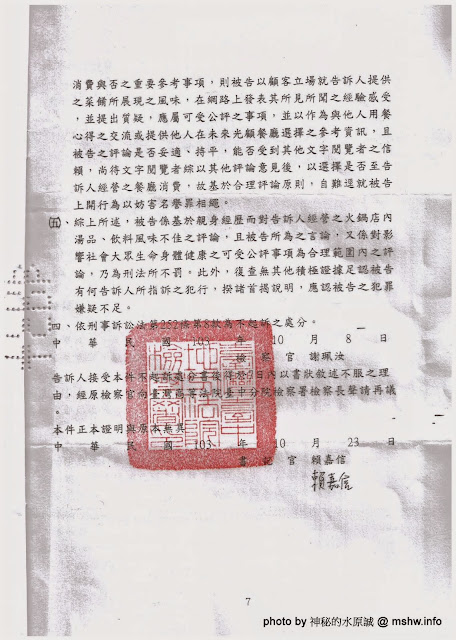 消費與否之重要參考事項，則被告以顧客立場就告訴人提供
之菜餚所展現之風味，在網路上發表其所見所聞之經驗感受
，並提出質疑，應屬可受公評之事項，並以作為與他人用餐
心得之交流或提供他人在未來光顧餐廳選擇之參考資訊，且
被告之評論是否妥適、持平，能否受到其他文字閱覽者之信
賴，尚待文字閱覽者綜以其他評論意見後，以選擇是否至告
訴人經營之餐廳消費，故基於合理評論原則，自難遽就被告
上開行為以妨害名譽罪相繩。
㈤、綜上所述，被告係基於親身經歷而對告訴人經營之火鍋店內
湯品、飲料風味不佳之評論，且被告所為之言論，又係對影
響社會大眾生命身體健康之可受公評事項為合理範圍內之評
論，乃為刑法所不罰。此外，復查無其他積極證據足認被告
有何告訴人所指訴之犯行，揆諸首揭說明，應認被告之犯罪
嫌疑不足。
四、依刑事訴訟法第252條第8款為不起訴之處分。
中華民國103年10月8日
檢察官 謝珮汝
告訴人接受本件不起訴處分書後得於7日內以書狀敘述不服之理
由，經原檢察官向臺灣高等法院臺中分院檢察署檢察長聲請再議
。
本件正本證明與原本無異
中華民國103年10月23日
書記官 賴嘉信
賴嘉信
7
photo by 神秘的水原誠 @ mshw.info